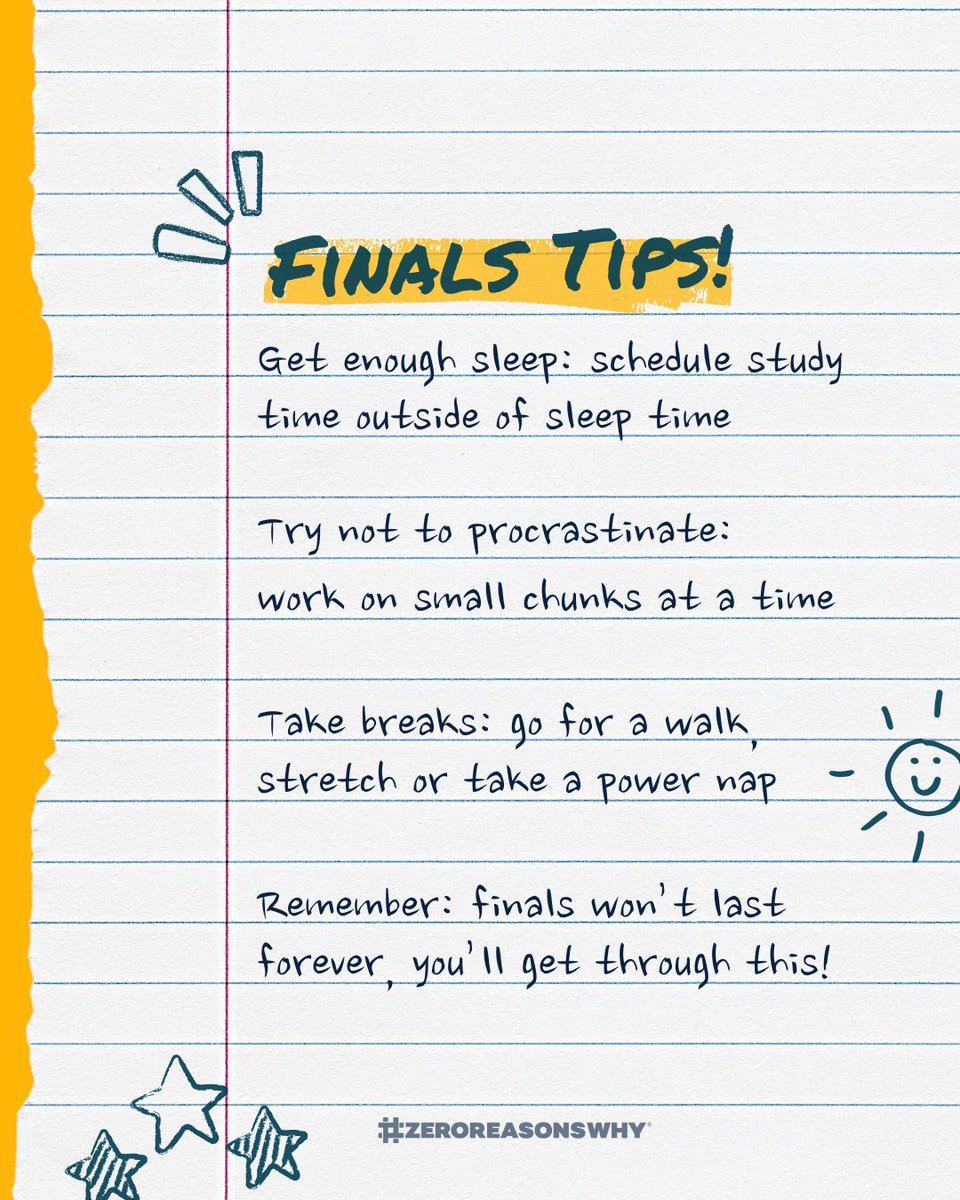 Finals Tips!
Get enough sleep: schedule study
time outside of sleep time
Try not to procrastinate:
work on small chunks at a time
Take breaks: go for a walk,
stretch or take a power nap
Remember: finals won't last
forever, you'll get through this!
#ZEROREASONSWHY®